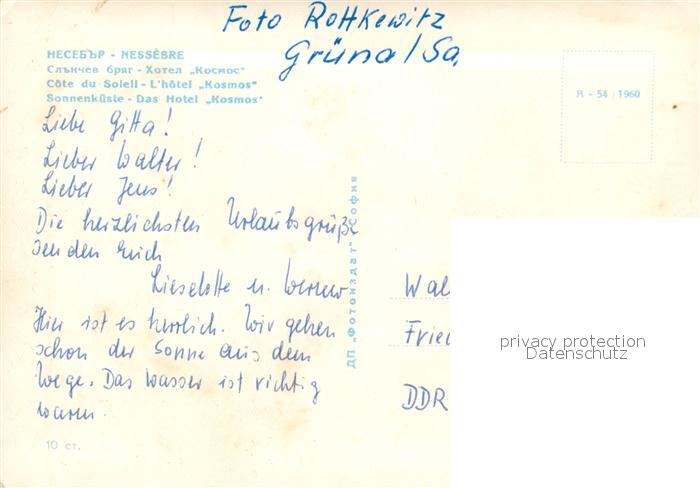 Foto Rottkewitz
Grüna/Sa.
НЕСЕБЪР - NESSÈBRE
Слънчев бряг - Хотел „Космос"
Côte du Soleil - L'hôtel „Kosmos"
Sonnenküste - Das Hotel „Kosmos"
Я - 54 1960
Liebe Gitta!
Lieber Walter!
Lieber Jens!
Die herzlichsten Urlaubsgrüße
senden Euch
Lieselotte u. Werner
Hier ist es herrlich. Wir gehen
schon der Sonne aus dem
Wege. Das Wasser ist richtig
warm.
10 ст.
ДП „Фотоиздат" София
Wal
Fried
DDR
privacy protection
Datenschutz